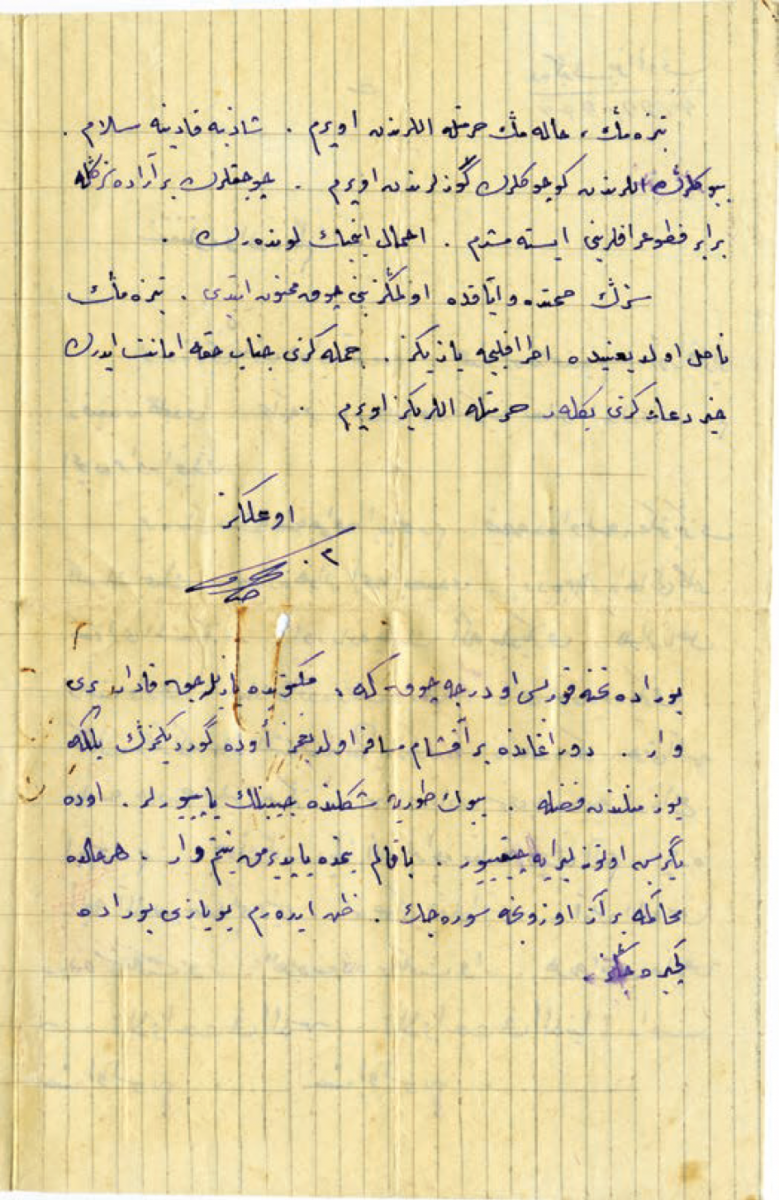 تیزه مڭ ، خاله مڭ حرمتله اللرندن اوپرم . شاذیه قادینه سلام .
بیوكلرڭ اللرندن كوچوكلرڭ گوزلرندن اوپرم . چوجقلرڭ بر آراده سزڭله
برابر فطوغرافلرینی ایسته مشدم . اهمال ایتمیك كوندەرڭ .
سزڭ صحتده و آیاقده اولمڭز بنی چوق ممنون ایتدی . تیزه مڭ
ناصل اولدیغنیده اطرافلیجه یازیڭز . جمله كزی جناب حقه امانت ایدرك
خیر دعاڭزی بكلر حرمتله اللریڭز اوپرم .
اوغلڭز
بوراده تخته قوریسی او درجه چوق كه ، مكتوبده یازیلرجق قادار یری
وار . دوراغانده بر آقشام مسافر اولدیغمز أوده گوردیكمزڭ بلكه
یوز مثلندن فضله . بیوك طوربه شكلنده جیبنلك یاپییورلر . اوده
یگرمی اوتوز لیرایه چیقییور . باقالم بنده یاپدیرمق نیتم وار . هر حالده
محاكمه بر آز اوزونجه سوره جك . ظن ایده رم بو یازی بوراده
گچیره جڭز .